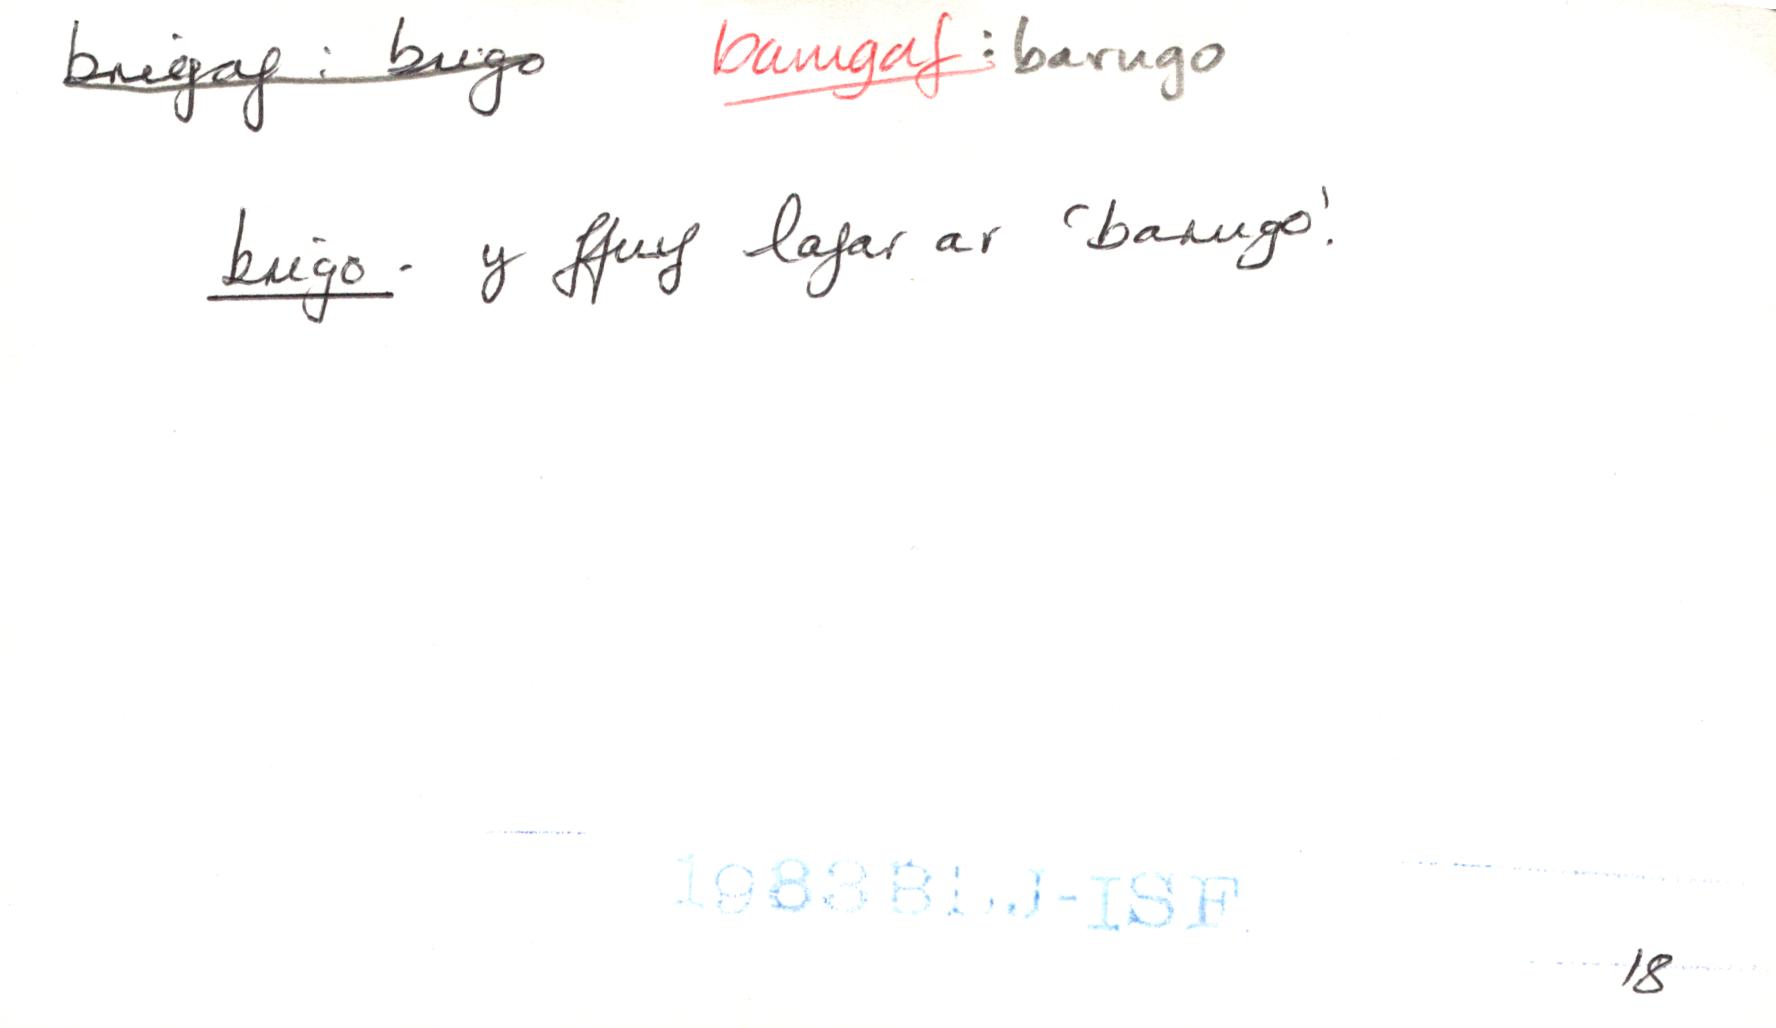 brigaf : brigo barugaf : barugo
brigo - y ffurf lafar ar 'barugo'.
1983 BLJ-ISF
18